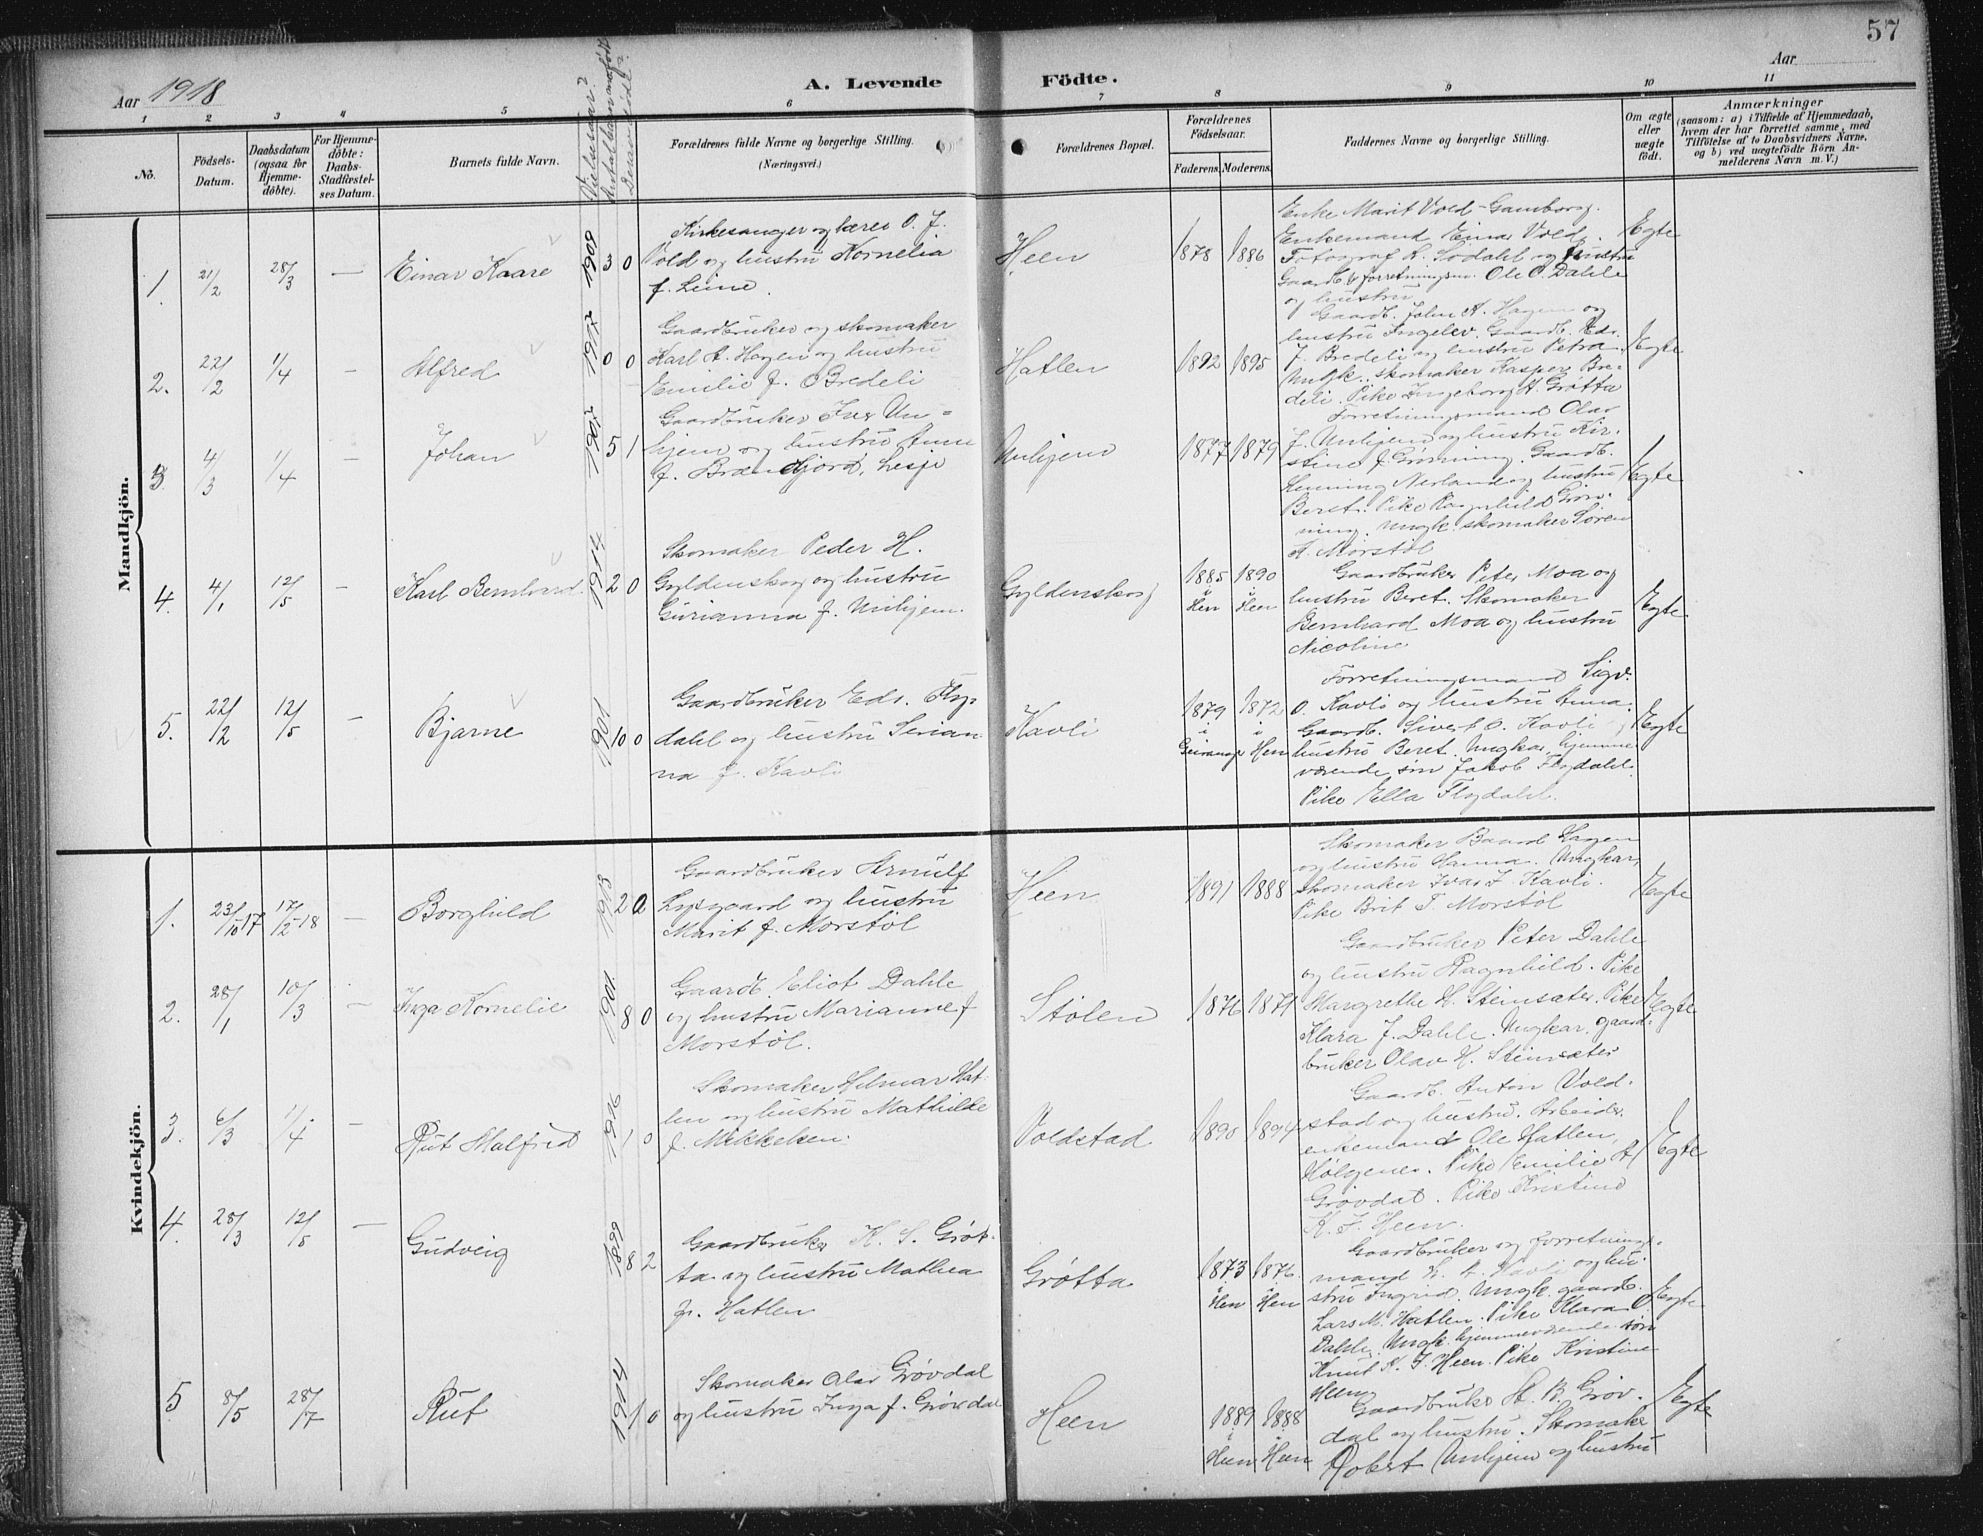 57
Aar 1918
A. Levende Födte.
Aar
1 2 3 4 5 6 7 8 9 10 11
No.
Födsels-
Datum.
Daabsdatum
(ogsaa for
Hjemme-
döbte).
For Hjemme-
döbte:
Daabs-
Stadfæstel-
ses Datum.
Barnets fulde Navn.
Vielsesaar?
Forældrenes fulde Navne og borgerlige Stilling.
(Næringsvei.)
Forældrenes Bopæl.
Forældrenes
Födselsaar.
Faderens. Moderens.
Faddernes Navne og borgerlige Stilling.
Om ægte
eller
uægte
födt.
Anmærkninger
(saasom: a) i Tilfælde af Hjemmedaab,
hvem der har forrettet samme, med
Tilföielse af to Daabsvidners Navne,
og b) ved uægtefödte Börn An-
melderens Navn m. V.)
Mandkjön.
1. 21/2 28/3 — Einar Kaare 1908 3 0
Kirkesanger og lærer O. J.
Vold og hustru Kornelia
f. Leine.
Heen 1878 1886
Enke Marit Vold-Gamborg.
Enkemand Einar Vold.
Fotograf K. Sødahl og hustru
Gaardb. & forretningsm. Ole O. Dahle
og hustru
Egte
2. 22/2 1/4 — Alfred 1917 0 0
Gaardbruker og skomaker
Karl A. Hagen og hustru
Emilie f. Bredeli
Hatlen 1892 1895
Gaardb. John A. Hagen og
hustru Ingelev. Gaardb. Edv.
J. Bredeli og hustru Petra.
Ungk. skomaker Kasper Bre-
deli. Pike Ingeborg A. Grøtta
Egte
3 4/3 1/4 — Johan 1907 5 1
Gaardbruker Iver Un-
hjem og hustru Anne
f. Brændjord, Lesje
Unhjem 1877 1879
Forretningsmand Olav
J. Unhjem og hustru Kir-
stine f. Grønning. Gaardb.
Henning Nerland og hustru
Beret. Pike Ragnhild Grøn-
ning. Ungk. skomaker Søren
A. Morstøl
Egte
4. 4/1 12/5 — Karl Bernhard 1914 2 0
Skomaker Peder H.
Gyldenskog og hustru
Gurianna f. Unhjem.
Gyldenskog 1885 i Hen 1890 i Heen
Gaardbruker Peter Moa og
hustru Beret. Skomaker
Bernhard Moa og hustru
Nicoline
Egte
5. 22/2 12/5 — Bjarne 1901 10 0
Gaardbruker Edv. Fly-
dahl og hustru Serian-
na f. Kavli
Kavli 1879 i Geiranger 1872 i Hen
Forretningsmand Sigv.
O. Kavli og hustru Anna.
Gaardb. Sivert O. Kavli
hustru Beret. Ungkar, hjemme
værende søn Jakob Flydahl.
Pike Ella Flydahl.
Egte
Kvindekjön.
1. 23/10-17 17/2-18 — Borghild 1913 2 0
Gaardbruker Arnulf
Lysgaard og hustru
Marit f. Morstøl
Heen 1891 1888
Skomaker Baard Hagen
og hustru Hanna. Ungkar,
skomaker Ivar J. Kavli.
Pike Brit T. Morstøl
Egte
2. 28/1 10/3 — Inga Kornelie 1901 8 0
Gaardb. Eliot Dahle
og hustru Marianne f
Morstøl.
Stølen 1876 1871
Gaardbruker Peter Dahle
og hustru Ragnhild. Pike
Margrethe H. Steinsæter. Pike
Klara J. Dahle. Ungkar, gaard-
bruker Olav H. Steinsæter
Egte
3. 6/3 1/4 — Rut Malfrid 1916 1 0
Skomaker Hilmar Hat-
len og hustru Mathilde
f. Mikkelsen.
Voldstad 1890 1894
Gaardb. Anton Vold-
stad og hustru. Arbeider
enkemand Ole Hatlen,
Holgenes. Pike Emilie A
Grøvdal. Pike Kristine
K. J. Heen.
Egte
4. 28/3 12/5 — Gudveig 1899 8 2
Gaardbruker K. S. Grøt-
ta og hustru Mathea
f. Hatlen
Grøtta 1873 i Hen 1876 i Hen
Gaardbruker og forretnings-
mand L. A. Kavli og hu-
stru Ingrid. Ungk. gaardb.
Lars M. Hatlen. Pike Klara O.
Dahle. Ungk. hjemmeværende søn
Knut K. J. Heen. Pike Kristine
Heen
Egte
5 8/5 28/7 Rut 1914 1 0
Skomaker Olav Grøvdal
og hustru Inga f. Grøvdal
Heen 1889 i Heen 1888 i Heen
Gaardbruker A. B. Grøv-
dal og hustru. Skomaker
Robert Unhjem og hustru
Egte